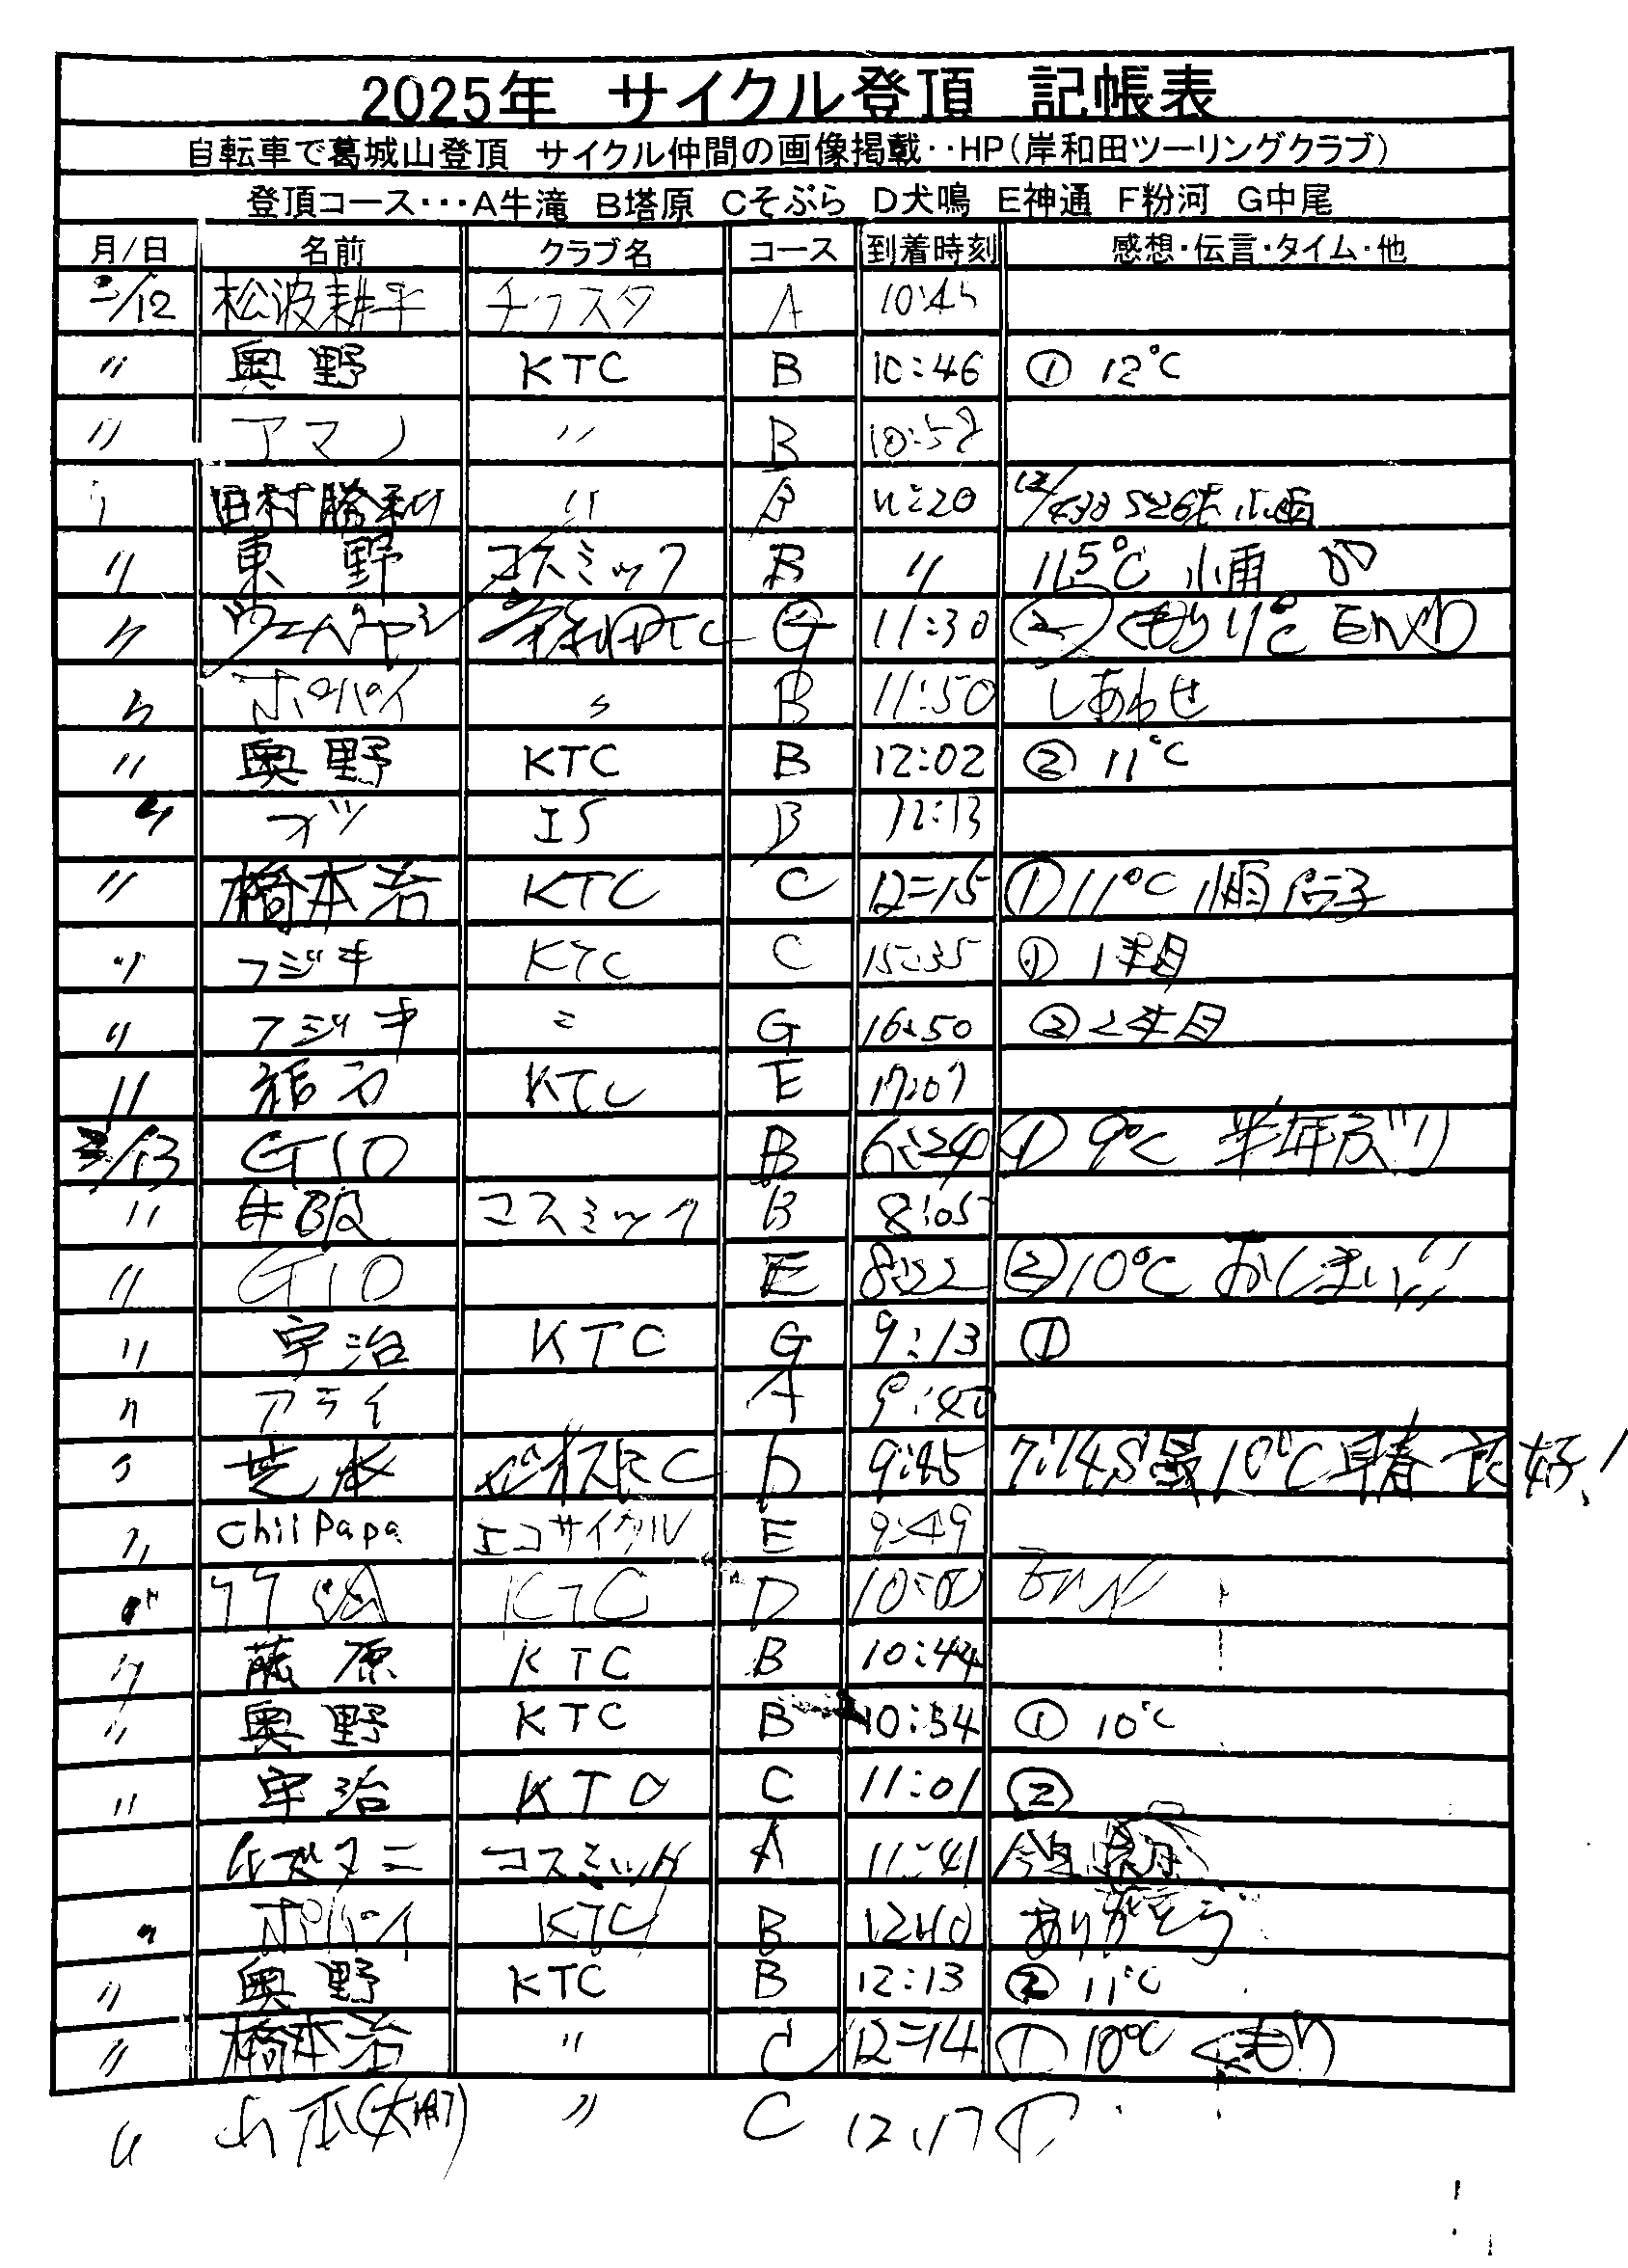 2025年 サイクル登頂 記帳表
自転車で葛城山登頂 サイクル仲間の画像掲載‥HP(岸和田ツーリングクラブ)
登頂コース…A牛滝 B塔原 Cそぶら D犬鳴 E神通 F粉河 G中尾
月/日 名前 クラブ名 コース 到着時刻 感想・伝言・タイム・他
/12 松波耕平 チクスタ A 10:45
〃 奥野 KTC B 10:46 ① 12℃
〃 アマノ 〃 B 10:52
田村勝利 〃 B 11:20 小雨
〃 東野 コスミック B 〃 11.5℃ 小雨
〃 G 11:30 ② くもり 11℃
〃 ポパイ 〃 B 11:50 しあわせ
〃 奥野 KTC B 12:02 ② 11℃
〃 B 12:13
〃 橋本治 KTC C 12=15 ① 11℃ 小雨
〃 フジキ KTC C 15:35 ① 1本目
〃 フジキ 〃 G 16:50 ② 2本目
〃 KTC E 17:07
/13 GIO B 6:24 ① 9℃ 半年ぶり
〃 井阪 コスミック B 8:05
〃 GIO E 8:22 ② 10℃ おしまい!!
〃 宇治 KTC G 9:13 ①
〃 アライ A 9:40
〃 芝本 D 9:45 10℃ 早春 良好!
〃 Chil Papa エコサイクル E 9:49
〃 KTC D 10:00
〃 藤原 KTC B 10:44
〃 奥野 KTC B 10:54 ① 10℃
〃 宇治 KTC C 11:01 ②
コスミック A 11:41
〃 ポパイ KTC B 12:10 ありがとう
〃 奥野 KTC B 12:13 ② 11℃
〃 橋本治 〃 C 12=14 ① 10℃ くもり
〃 山本 〃 C 12:17 ①